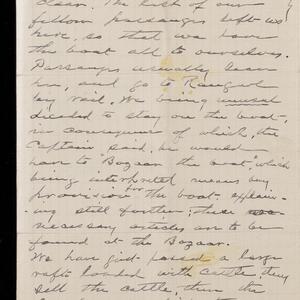 clear. The last of our
fellow passengers left us
here, so that we have
the boat all to ourselves.
Passengers usually leave
here, and go to Rangoon
by rail. We being unusual
decided to stay on the boat,
in consequence of which, the
Captain said, he would
have to Bazaar the boat, which
being interpreted means buy
provision for the boat, explain-
ing still further; these
necessary articles are to be
found at the Bazaar.
We have just passed a large
raft loaded with cattle, they
sell the cattle, then the